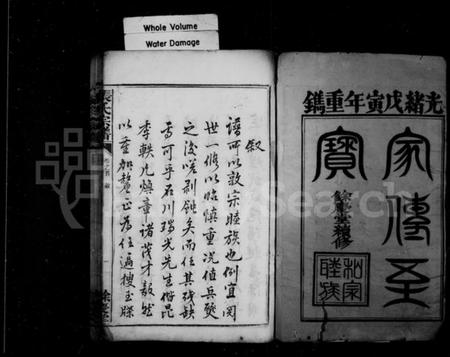 Whole Volume
Water Damage
光緒戊寅年重鐫
家傳至
寶
敘
譜所以敦宗睦族也例宜閱
世一修以昭慎重况值兵燹
之後嗟剥蝕矣而任其殘缺
焉可乎石川瑞光先生偕昆
季軼凡煥章諸茂才毅然
以重加釐正為任遍搜玉牒